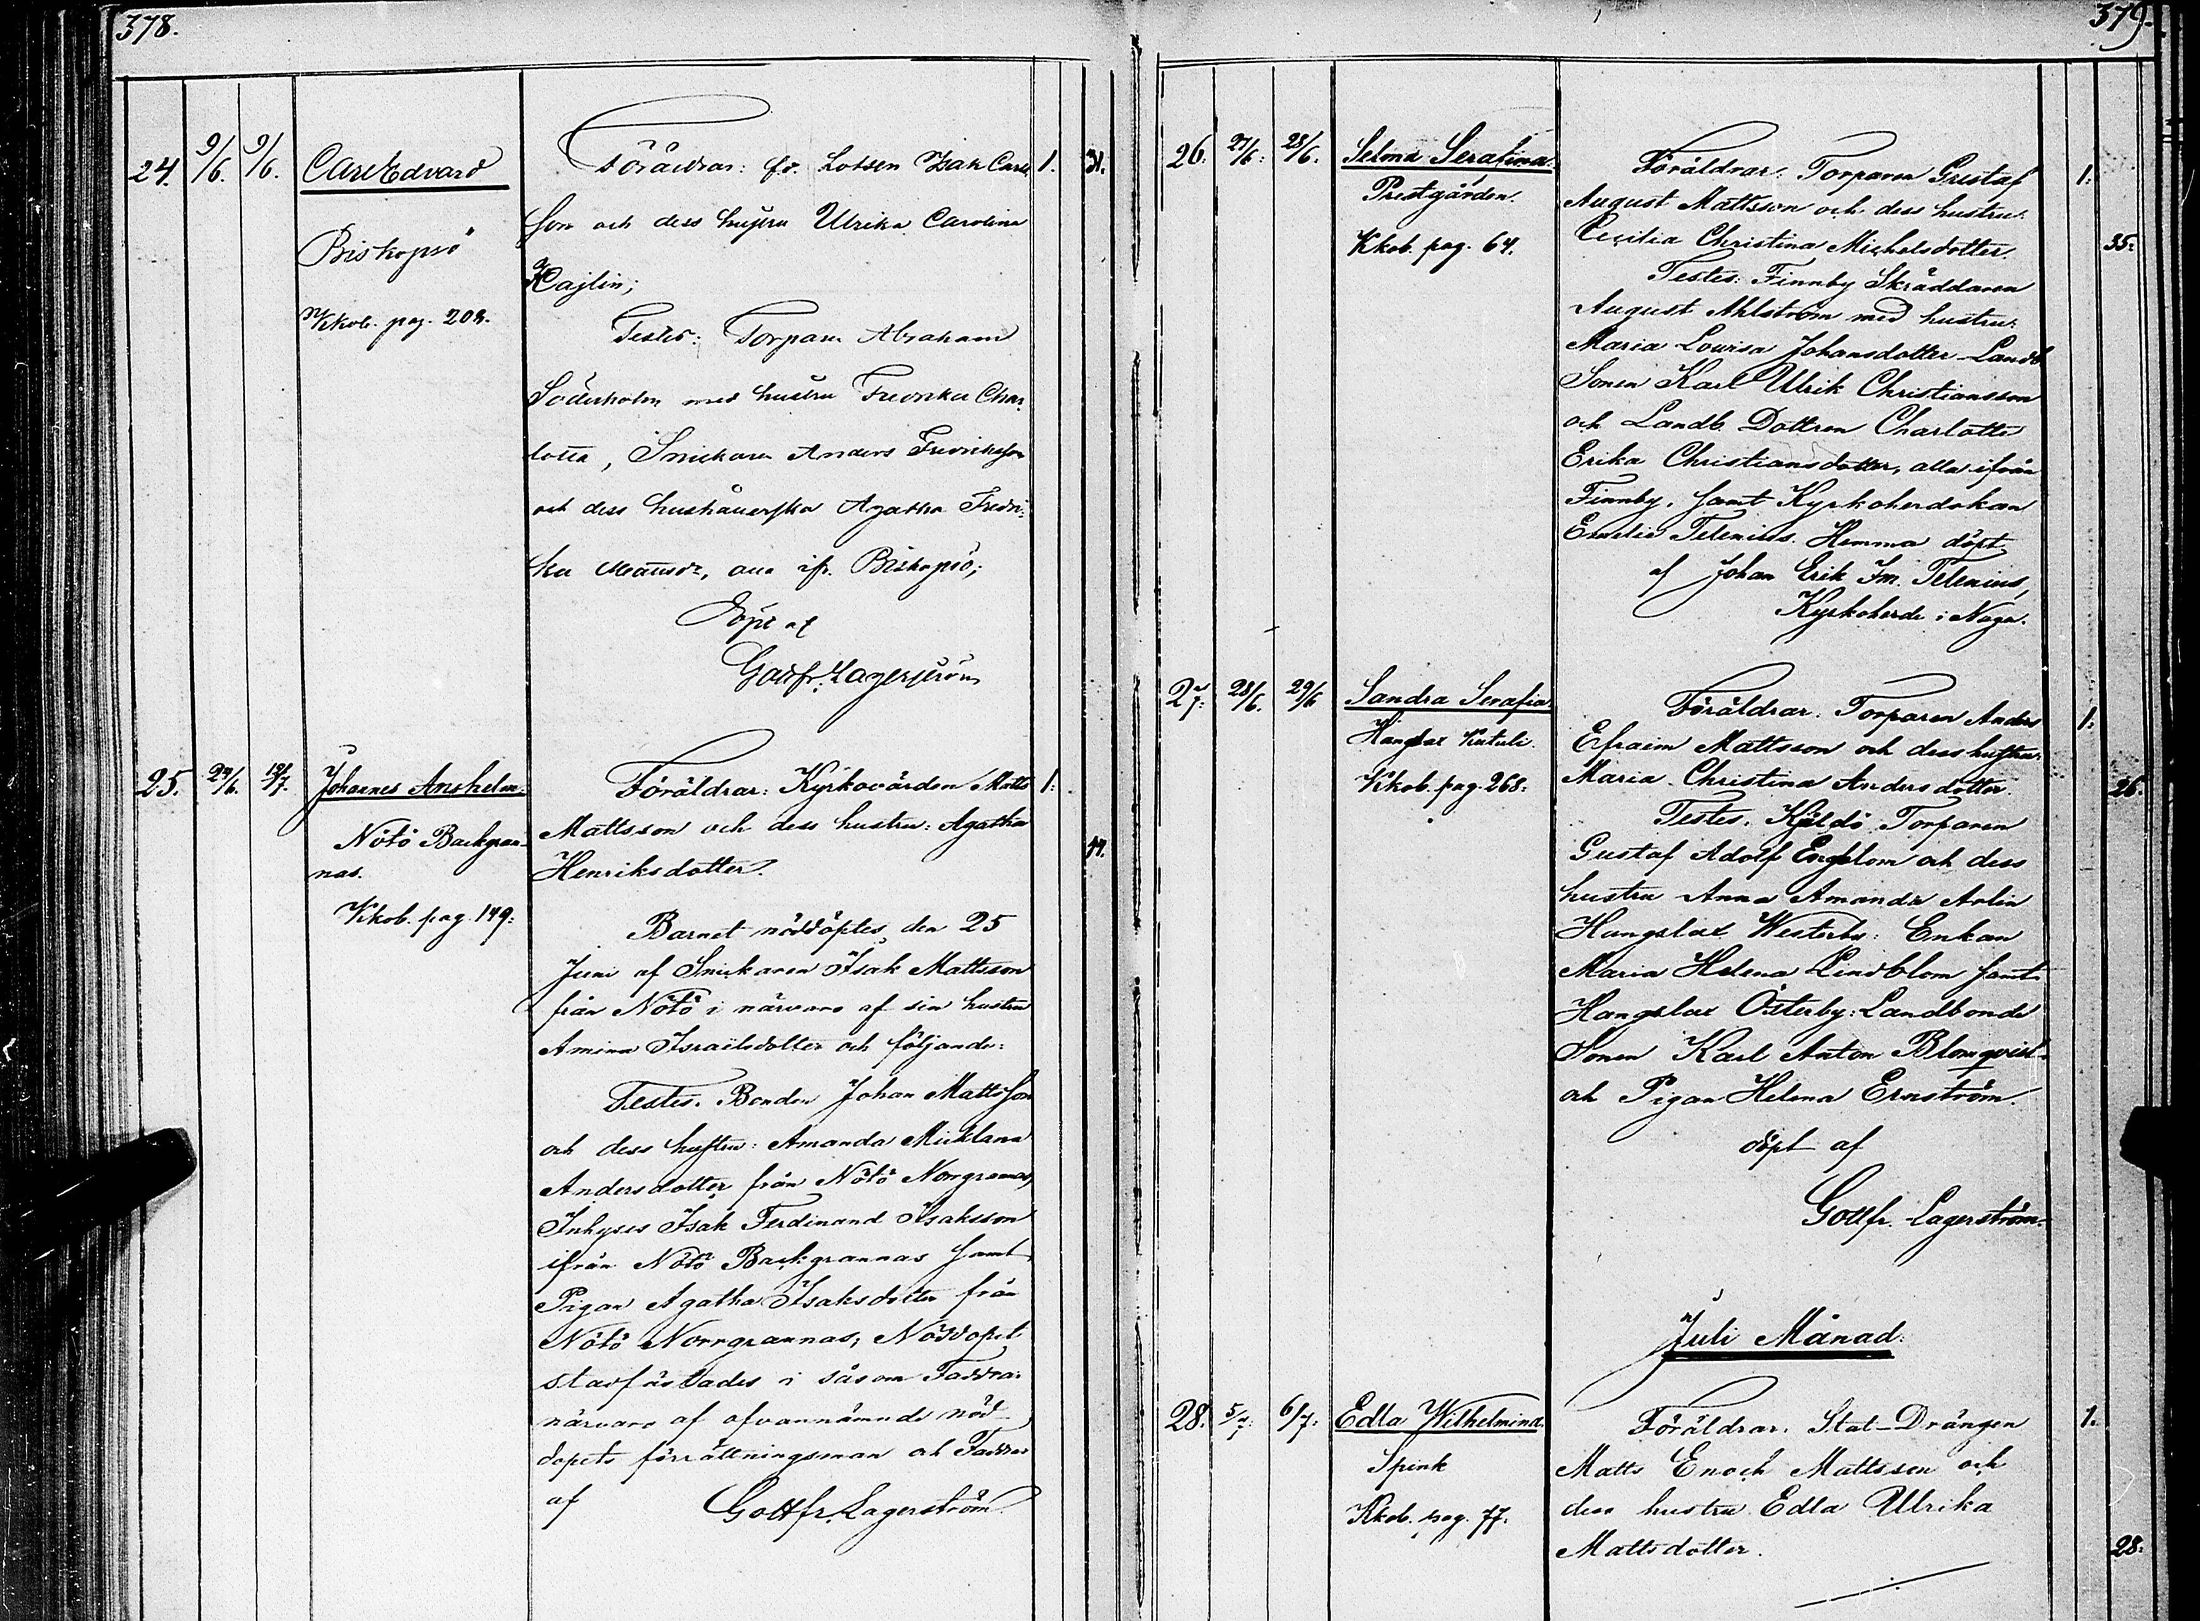 378.
24. 9/6. 9/6. Carl Edvard
Biskopsö
Kkob. pag. 202.
Föräldrar: fr. Lotsen Isak Carls
son och dess hustru Ulrika Carolina
Kajlin;
Testes: Torparen Abraham
Söderholm med hustru Fredrika Char
lotta, Snickaren Anders Fredriksson
och dess hushållerska Agatha Fredri:
ka Mattsdr, alla ifr. Biskopsö;
Döpt af
Gottfr. Lagerström
1. 31.
25. 24/6. 12/7. Johannes Anshelm.
Nötö Backgran-
nas.
Kkob. pag. 149:
Föräldrar: Kyrkovärden Matts
Mattsson och dess hustru: Agatha
Henriksdotter.
Barnet nöddöptes den 25
Juni af Snickaren Isak Mattsson
från Nötö i närvaro af sin hustru
Amina Israelsdotter och följande:
Testes. Bonden Johan Mattsson
och dess hustru: Amanda Micklana
Andersdotter från Nötö Norrgrannas,
Inhyses Isak Ferdinand Isaksson
ifrån Nötö Backgrannas samt
Pigan Agatha Isaksdotter från
Nötö Norrgrannas, Nöddopet
stadfästades i såsom Faddrar
närvaro af ofvannämnde nöd-
dopets förrättningsman och Faddrar
af Gottfr. Lagerström.
1: 44.
379.
26. 27/6. 28/6. Selma Serafina.
Prestgården.
Kkob. pag. 64.
Föräldrar. Torparen Gustaf
August Mattsson och dess hustru:
Cecilia Christina Michelsdotter.
Testes: Finnby Skräddaren
August Ahlström med hustru:
Maria Lovisa Johansdotter Landb
Sonen Karl Ulrik Christiansson
och Landb Dottren Charlotta
Erika Christiansdotter, alla ifrån
Finnby, samt Kyrkoherdskan
Emelie Telenius. Hemma döpt
af Johan Erik Im. Telenius,
Kyrkoherde i Nagu.
1: 35:
27. 28/6. 29/6 Sandra Serafia.
Hangslax Kutuli.
Kkob. pag. 268:
Föräldrar. Torparen Anders
Efraim Mattsson och dess hustru:
Maria Christina Andersdotter.
Testes. Käldö Torparen
Gustaf Adolf Engblom och dess
hustru Anna Amanda Arlin
Hangslax Westerby: Enkan
Maria Helena Lindblom samt
Hangslax Österby: Landbonde
Sonen Karl Anton Blomqvist
och Pigan Helena Ernström.
döpt af
Gottfr. Lagerström.
1: 26.
Juli Månad.
28. 5/7. 6/7. Edla Wilhelmina.
Spink
Kkob. pag. 77.
Föräldrar. Stat-Drängen
Matts Enoch Mattsson och
dess hustru Edla Ulrika
Mattsdotter.
1. 28.